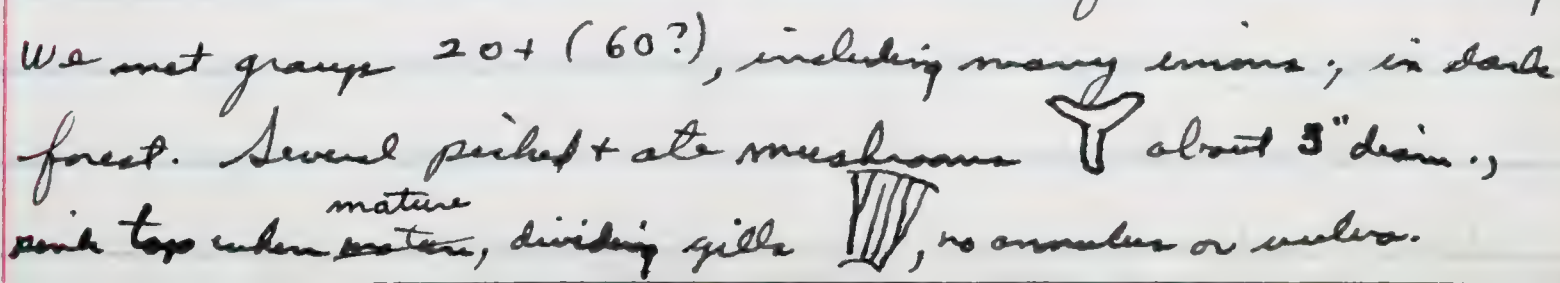 We met groups 20+ (60?), including many imms., in dark
forest. Several picked + ate mushrooms about 3" diam.,
pink top when mature, dividing gills, no annulus or vulva.